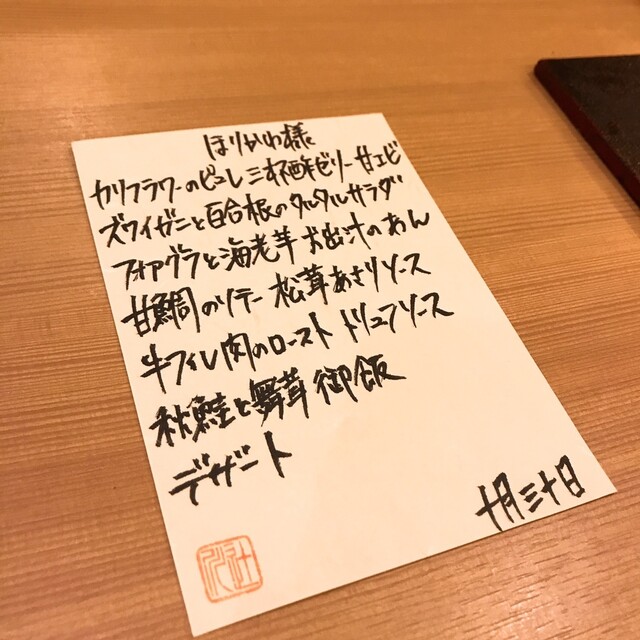 ほりかわ様
カリフラワーのピュレ 三杯酢ゼリー 甘エビ
ズワイガニと百合根のタルタルサラダ
フォアグラと海老芋 お出汁のあん
甘鯛のソテー 松茸あさりソース
牛フィレ肉のロースト トリュフソース
秋鮭と舞茸御飯
デザート
十月三十日